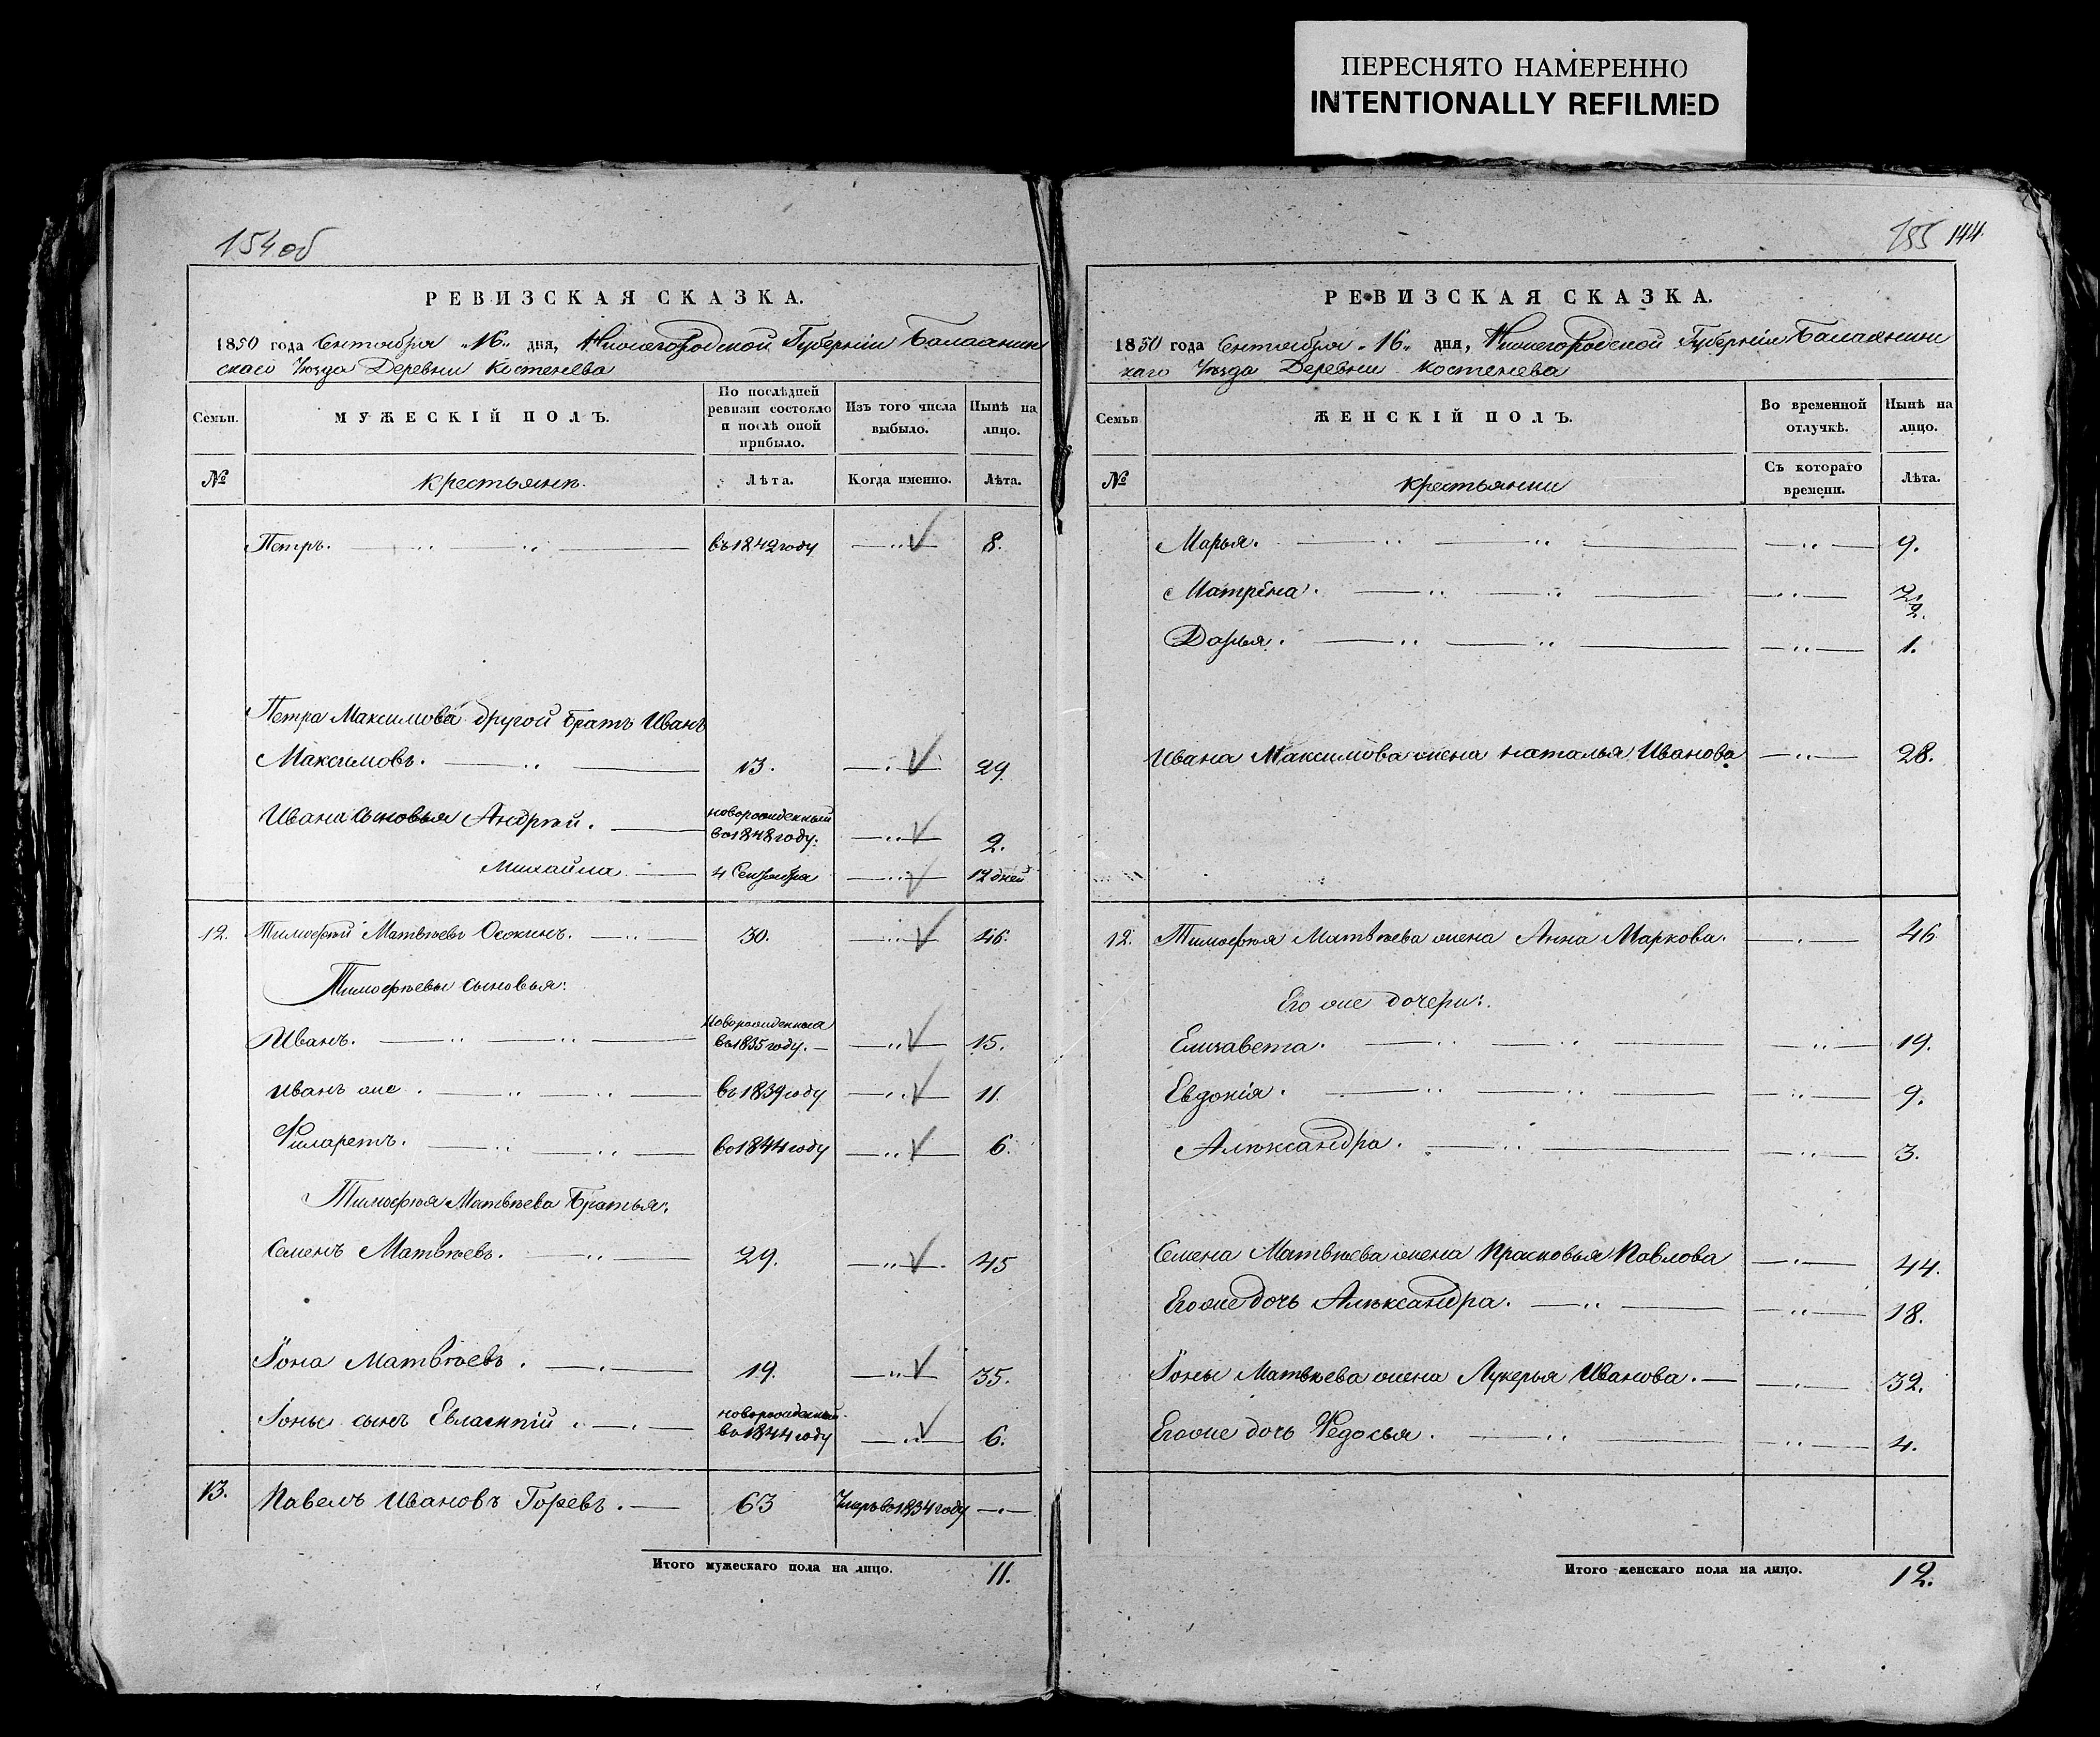 ПЕРЕСНЯТО НАМЕРЕННО
INTENTIONALLY REFILMED
154 об
РЕВИЗСКАЯ СКАЗКА.
1850 года Сентября „16„ дня, Нижегородской Губерніи Балахнин
скаго Уѣзда Деревни Костенева
Семьи.
МУЖЕСКІЙ ПОЛЪ.
По послѣдней ревизіи состояло и послѣ оной прибыло.
Изъ того числа выбыло.
Нынѣ на лицо.
№
крестьяне.
Лѣта.
Когда именно.
Лѣта.
Петръ. въ 1842 году 8.
Петра Максимова другой братъ Иванъ
Максимовъ. 13. 29.
Ивана сыновья Андрей. новорожденный во 1848 году. 2.
Михайла 4 Сентября 12 дней
12. Тимофей Матвѣевъ Осокинъ. 30. 46.
Тимофѣевы сыновья:
Иванъ. Новорожденныя въ 1835 году. 15.
Иванъ же. въ 1839 году 11.
Филаретъ. во 1844 году 6.
Тимофѣя Матвѣева братья.
Семенъ Матвѣевъ. 29. 45
Іона Матвѣевъ. 19. 35.
Іоны сынъ Евлампій. новорожденный во 1844 году 6.
13. Павелъ Ивановъ Горевъ. 63 Умеръ во 1834 году
Итого мужескаго пола на лицо. 11.
155 144
РЕВИЗСКАЯ СКАЗКА.
1850 года Сентября „16„ дня, Нижегородской Губерніи Балахнин
скаго Уѣзда Деревни Костенева
Семьи
ЖЕНСКІЙ ПОЛЪ.
Во временной отлучкѣ.
Нынѣ на лицо.
№
крестьянки
Съ котораго времени.
Лѣта.
Марья. 9.
Матрёна.
Дарья. 1.
Ивана Максимова жена Наталья Иванова 28.
12. Тимофѣя Матвѣева жена Анна Маркова. 46
Его же дочери:
Елизавета. 19.
Евдокія. 9.
Алѣксандра. 3.
Семена Матвѣева жена Прасковья Павлова 44.
Его же дочь Алѣксандра. 18.
Іоны Матвѣева жена Лукерья Иванова. 32.
Его же дочь Ѳедосья. 4.
Итого женскаго пола на лицо. 12.